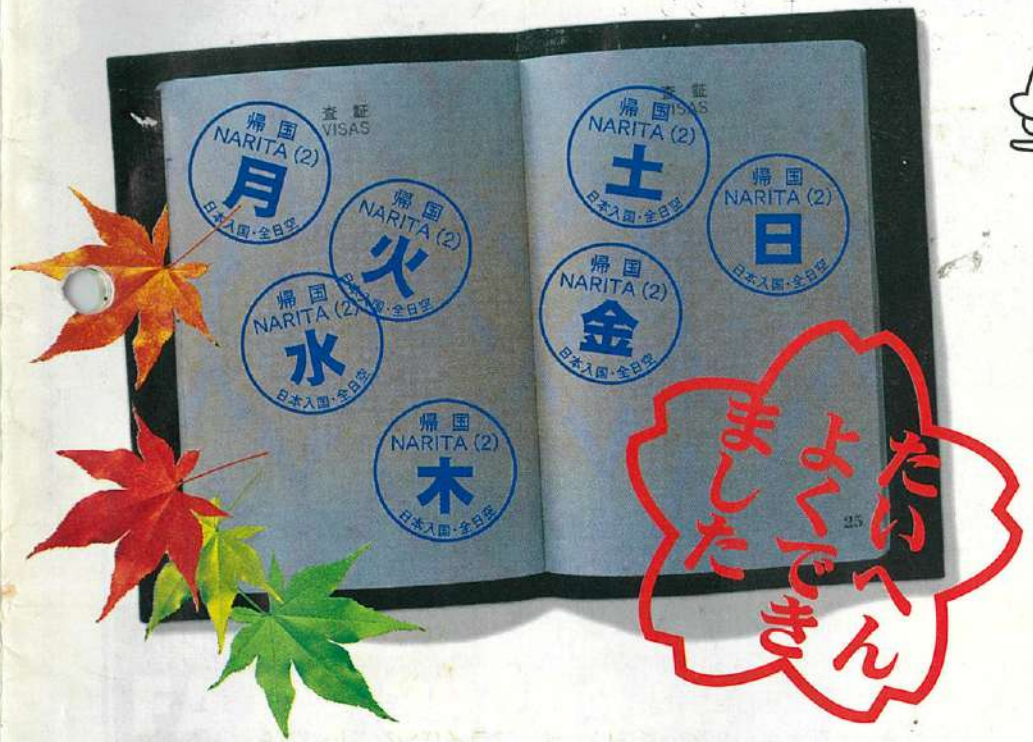 査証
VISAS
帰国
NARITA (2)
月
日本入国・全日空
帰国
NARITA (2)
火
日本入国・全日空
帰国
NARITA (2)
水
日本入国・全日空
帰国
NARITA (2)
木
日本入国・全日空
査証
VISAS
帰国
NARITA (2)
土
日本入国・全日空
帰国
NARITA (2)
日
日本入国・全日空
帰国
NARITA (2)
金
日本入国・全日空
25
たいへん
よくでき
ました